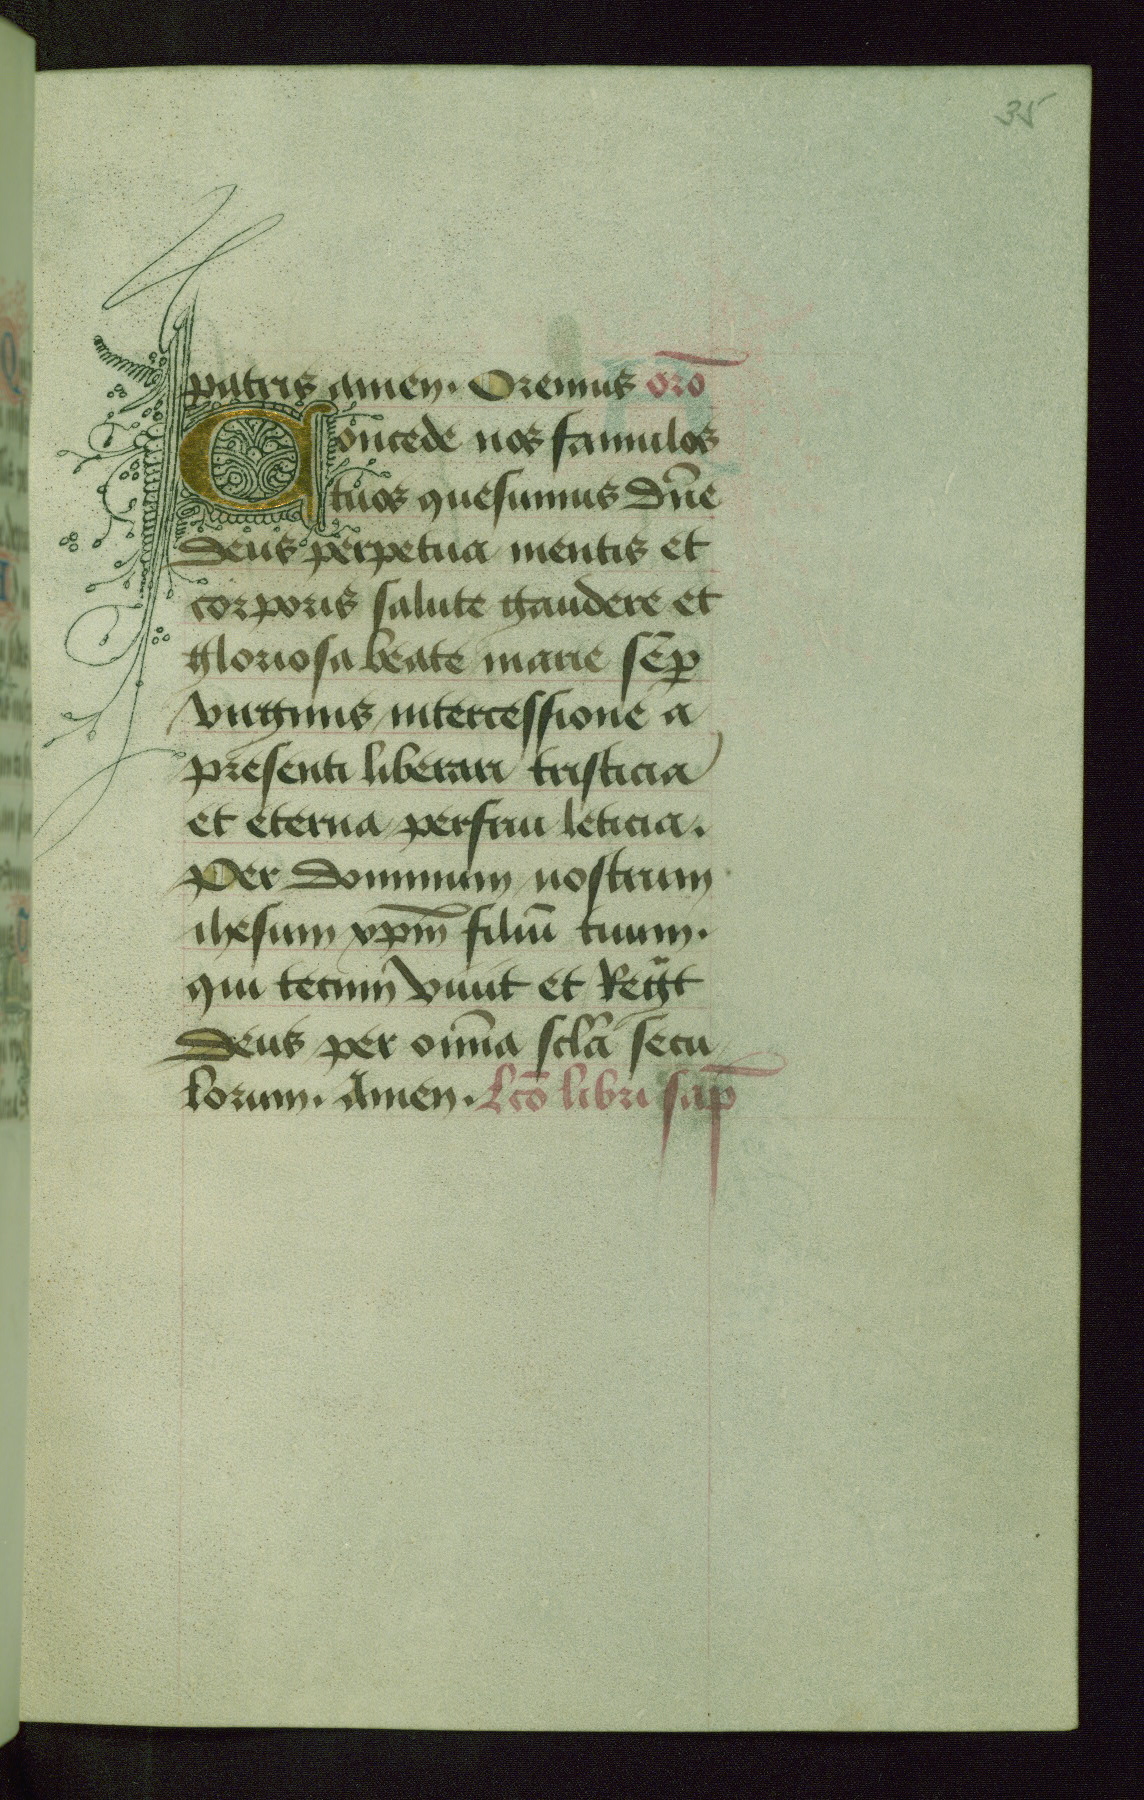 35
patris amen. Oremus oro᷃
Concede nos famulos
tuos quesumus dn̄e
deus perpetua mentis et
corporis salute gaudere et
gloriosa beate marie sēp
virginis intercessione a
presenti liberari tristicia
et eterna perfrui leticia.
Per dominum nostrum
ihesum xpm̄ filiū tuum.
qui tecum viuit et Regt̄
deus per omīa scl̄a secu
lorum. Amen. Lcō libri sap̄